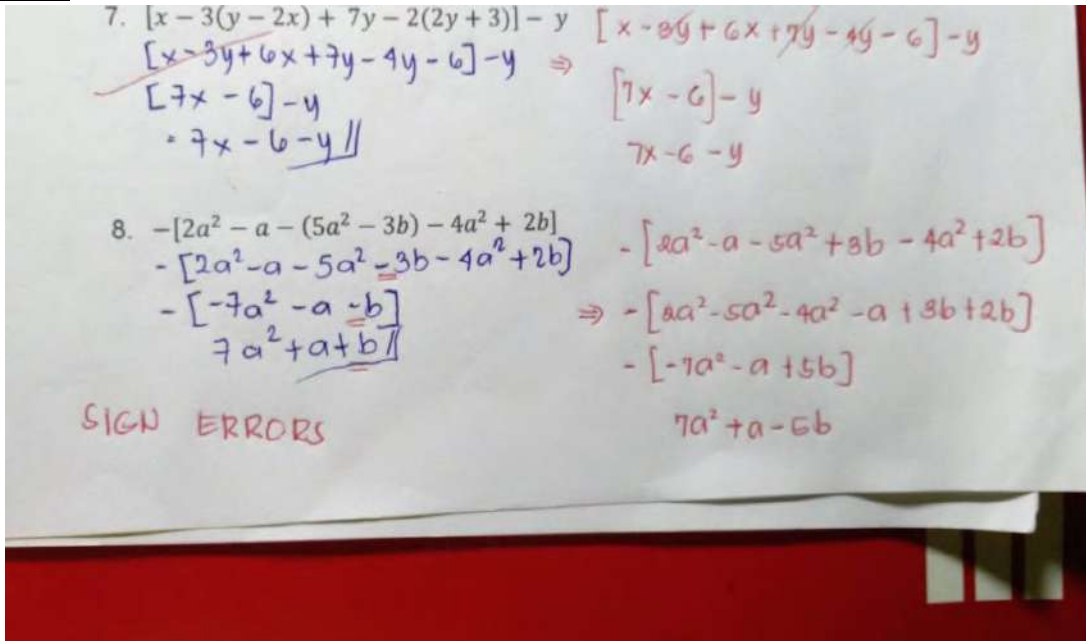 7. [x – 3(y – 2x) + 7y – 2(2y + 3)] – y
[x-3y+6x+7y-4y-6]-y
[7x-6]-y
= 7x-6-y//
⇒ [x-3y+6x+7y-4y-6]-y
[7x-6]-y
7x-6-y
8. –[2a² – a – (5a² – 3b) – 4a² + 2b]
-[2a²-a-5a²-3b-4a²+2b]
-[-7a²-a-b]
7a²+a+b//
-[2a²-a-5a²+3b-4a²+2b]
⇒ -[2a²-5a²-4a²-a+3b+2b]
-[-7a²-a+5b]
7a²+a-5b
SIGN ERRORS